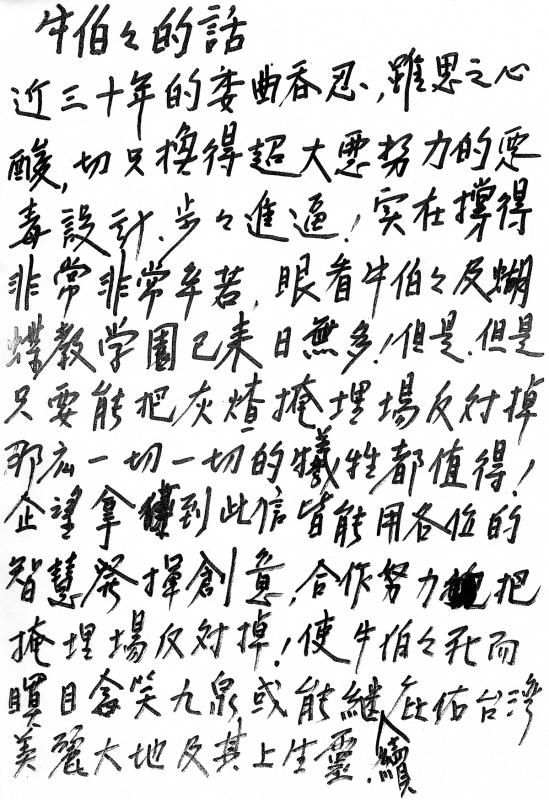 牛伯々的話
近三十年的委曲吞忍、雖思之心
酸,切只換得超大惡努力的惡
毒設計、步々進逼!实在撐得
非常非常辛苦,眼看牛伯々及蝴
蝶教学園已來日無多!但是、但是
只要能把灰燼掩埋場反对掉
那広一切一切的犧牲都值得!
企望拿到此信皆能用各位的
智慧発揮創意,合作努力把
掩埋場反对掉!使牛伯々死而
瞑目含笑九泉,或能繼續庇佑台灣
美麗大地及其上生靈.